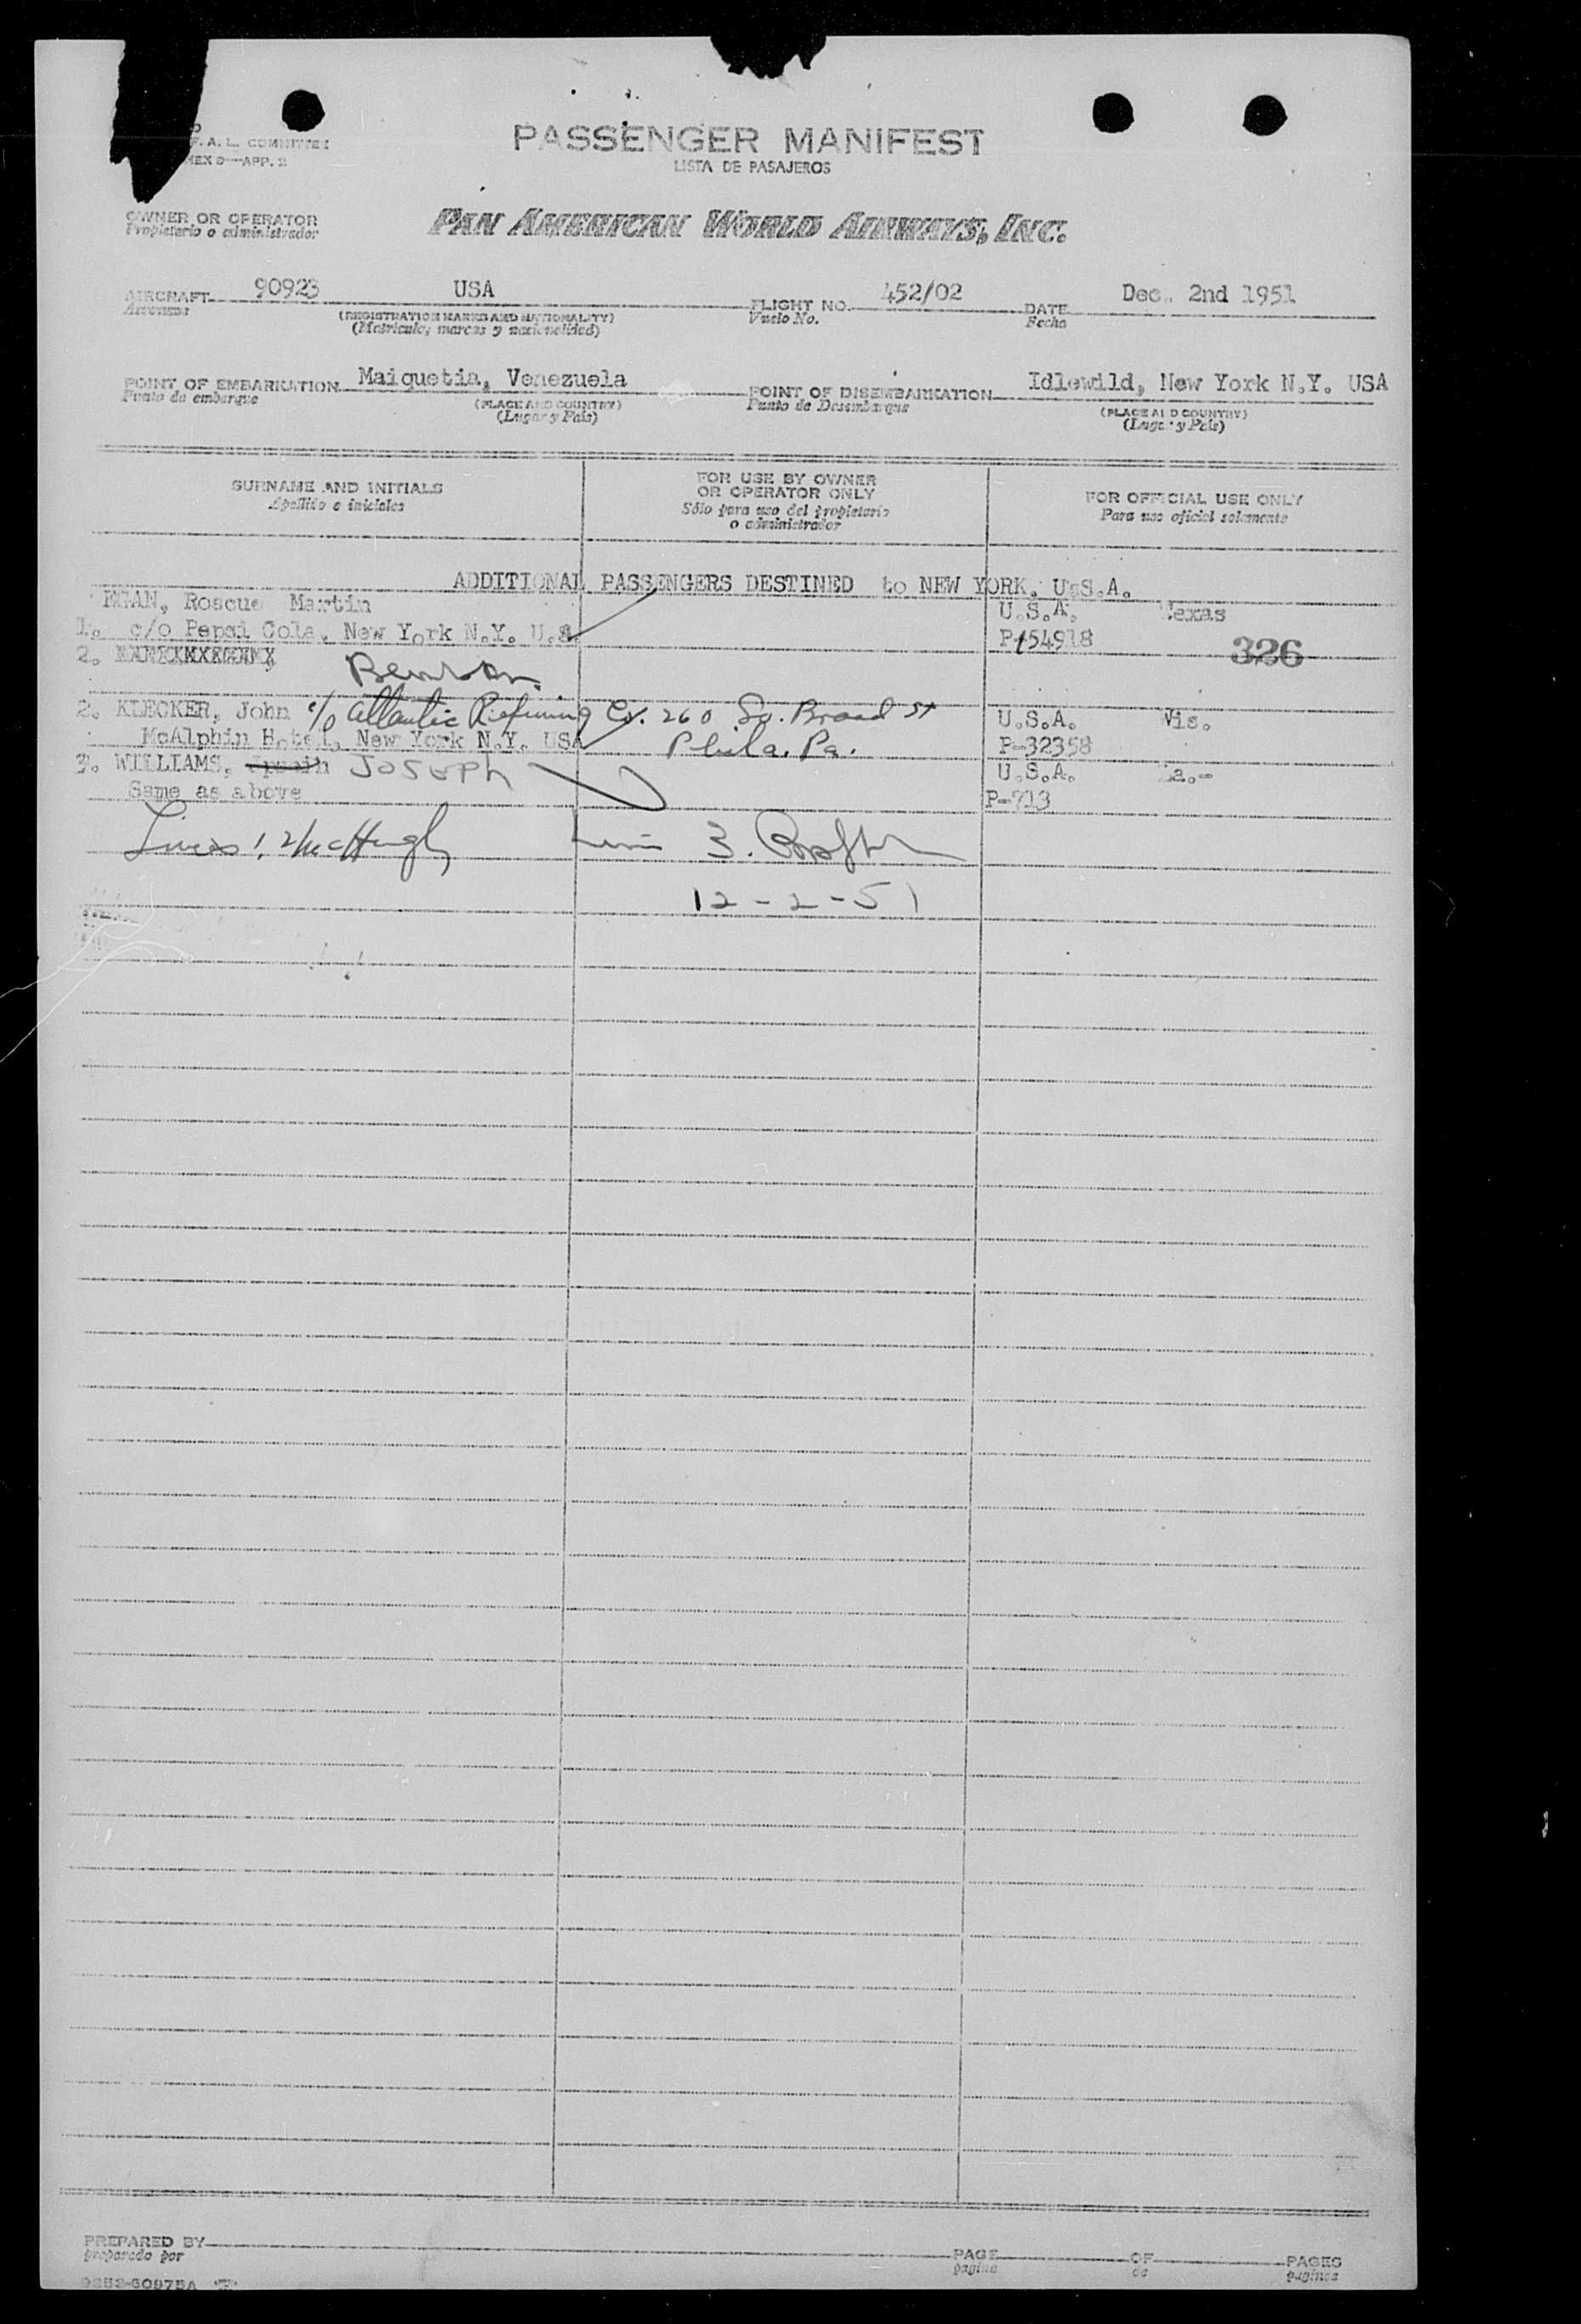 F. A. L. COMMITTEE
APP. 2
PASSENGER MANIFEST
LISTA DE PASAJEROS
OWNER OR OPERATOR
Propietario o administrador
PAN AMERICAN WORLD AIRWAYS, INC.
AIRCRAFT 90923 USA FLIGHT NO. 452/02 DATE Dec. 2nd 1951
Aeronave (REGISTRATION MARKS AND NATIONALITY) Vuelo No. Fecha
(Matricula, marcas y nacionalidad)
POINT OF EMBARKATION Maiquetia, Venezuela POINT OF DISEMBARKATION Idlewild, New York N.Y. USA
Punto de embarque (PLACE AND COUNTRY) Punto de Desembarque (PLACE AND COUNTRY)
(Lugar y País) (Lugar y País)
SURNAME AND INITIALS
Apellido e iniciales
FOR USE BY OWNER
OR OPERATOR ONLY
Sólo para uso del propietario
o administrador
FOR OFFICIAL USE ONLY
Para uso oficial solamente
ADDITIONAL PASSENGERS DESTINED to NEW YORK, U.S.A.
Roscue Martin U.S.A. Texas
1. c/o Pepsi Cola, New York N.Y. U.S. P-154918
326
2.
2. KLECKER, John c/o Atlantic Refining Co. 260 So. Broad St U.S.A. Wis.
McAlphin Hotel, New York N.Y. USA Phila. Pa. P-32358
3. WILLIAMS, Joseph U.S.A.
Same as above P-713
McHugh
12-2-51
PREPARED BY PAGE OF PAGES
preparado por pagina de paginas